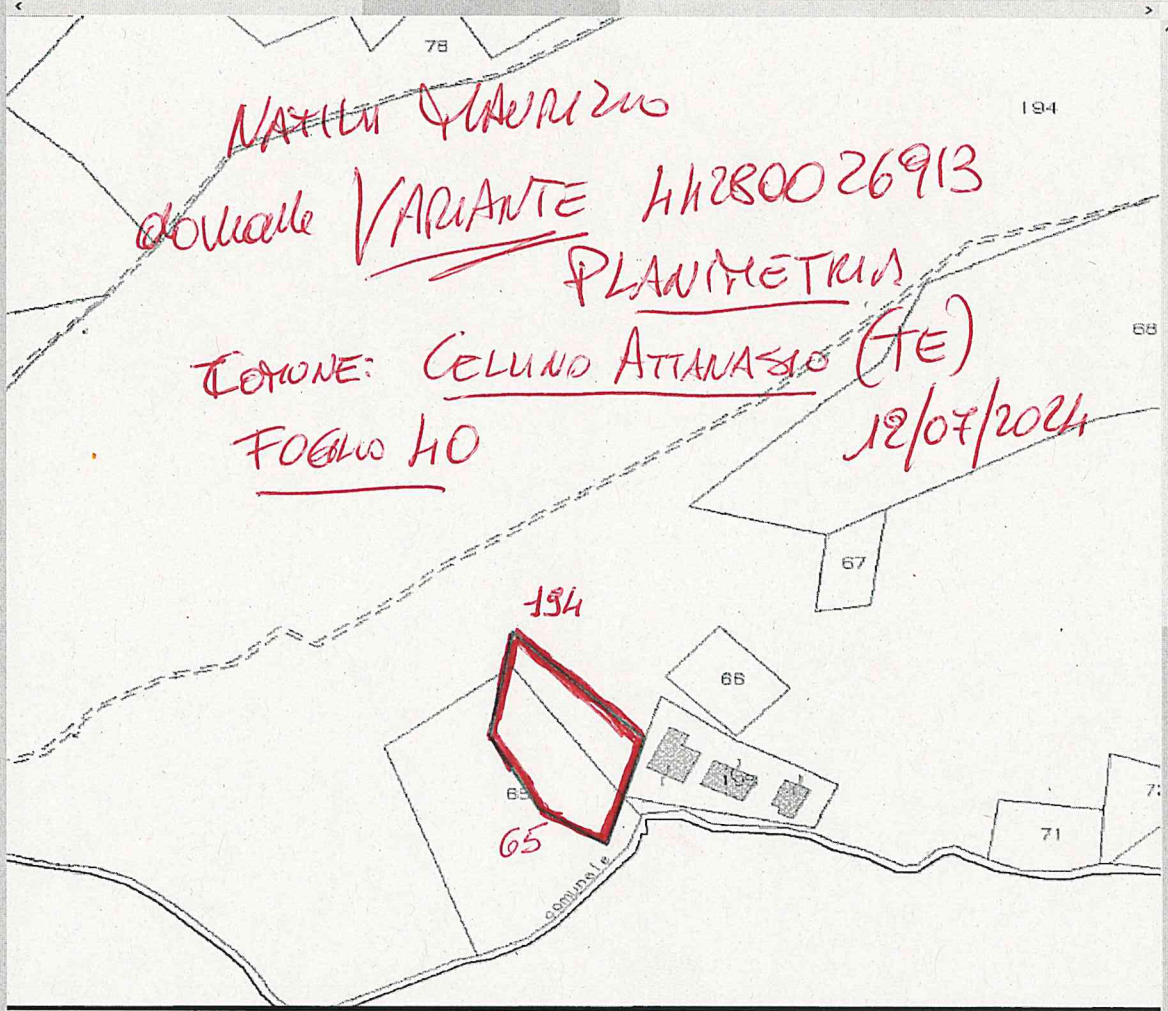 78
194
NATILII MAURIZIO
domanda VARIANTE 44280026913
PLANIMETRIA
68
COMUNE: CELLINO ATTANASIO (TE)
12/07/2024
FOGLIO 40
67
194
66
65
65
71
comunale